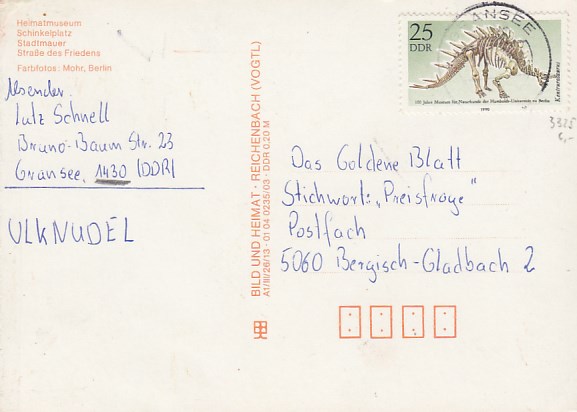 Heimatmuseum
Schinkelplatz
Stadtmauer
Straße des Friedens
Farbfotos: Mohr, Berlin
Absender:
Lutz Schnell
Bruno-Baum Str. 23
Gransee, 1430 (DDR)
ULKNUDEL
BILD UND HEIMAT · REICHENBACH (VOGTL)
A1/III/26/13 · 01 04 0235/03 · DDR 0,20 M
ANSEE
25
DDR
Kentrurosaurus
100 Jahre Museum für Naturkunde der Humboldt-Universität zu Berlin
1990
3325
6,-
Das Goldene Blatt
Stichwort: „Preisfrage"
Postfach
5060 Bergisch-Gladbach 2